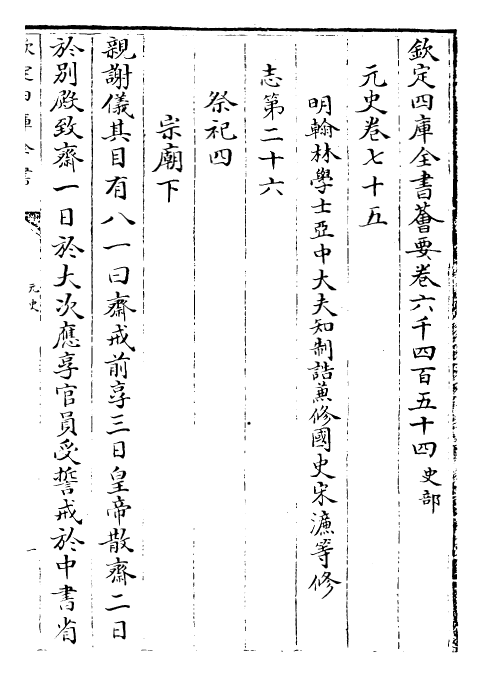 欽定四庫全書薈要卷六千四百五十四 史部
元史卷七十五
明翰林學士亞中大夫知制誥兼修國史宋濂等修
志第二十六
祭祀四
宗廟下
親謝儀其目有八一曰齋戒前享三日皇帝散齋二日
於別殿致齋一日於大次應享官員受誓戒於中書省
元史
一